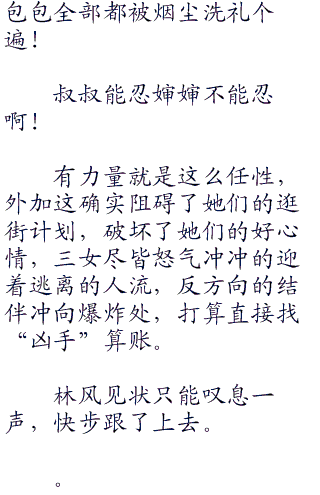 包包全部都被烟尘洗礼个
遍！
叔叔能忍婶婶不能忍
啊！
有力量就是这么任性，
外加这确实阻碍了她们的逛
街计划，破坏了她们的好心
情，三女尽皆怒气冲冲的迎
着逃离的人流，反方向的结
伴冲向爆炸处，打算直接找
“凶手”算账。
林风见状只能叹息一
声，快步跟了上去。
。